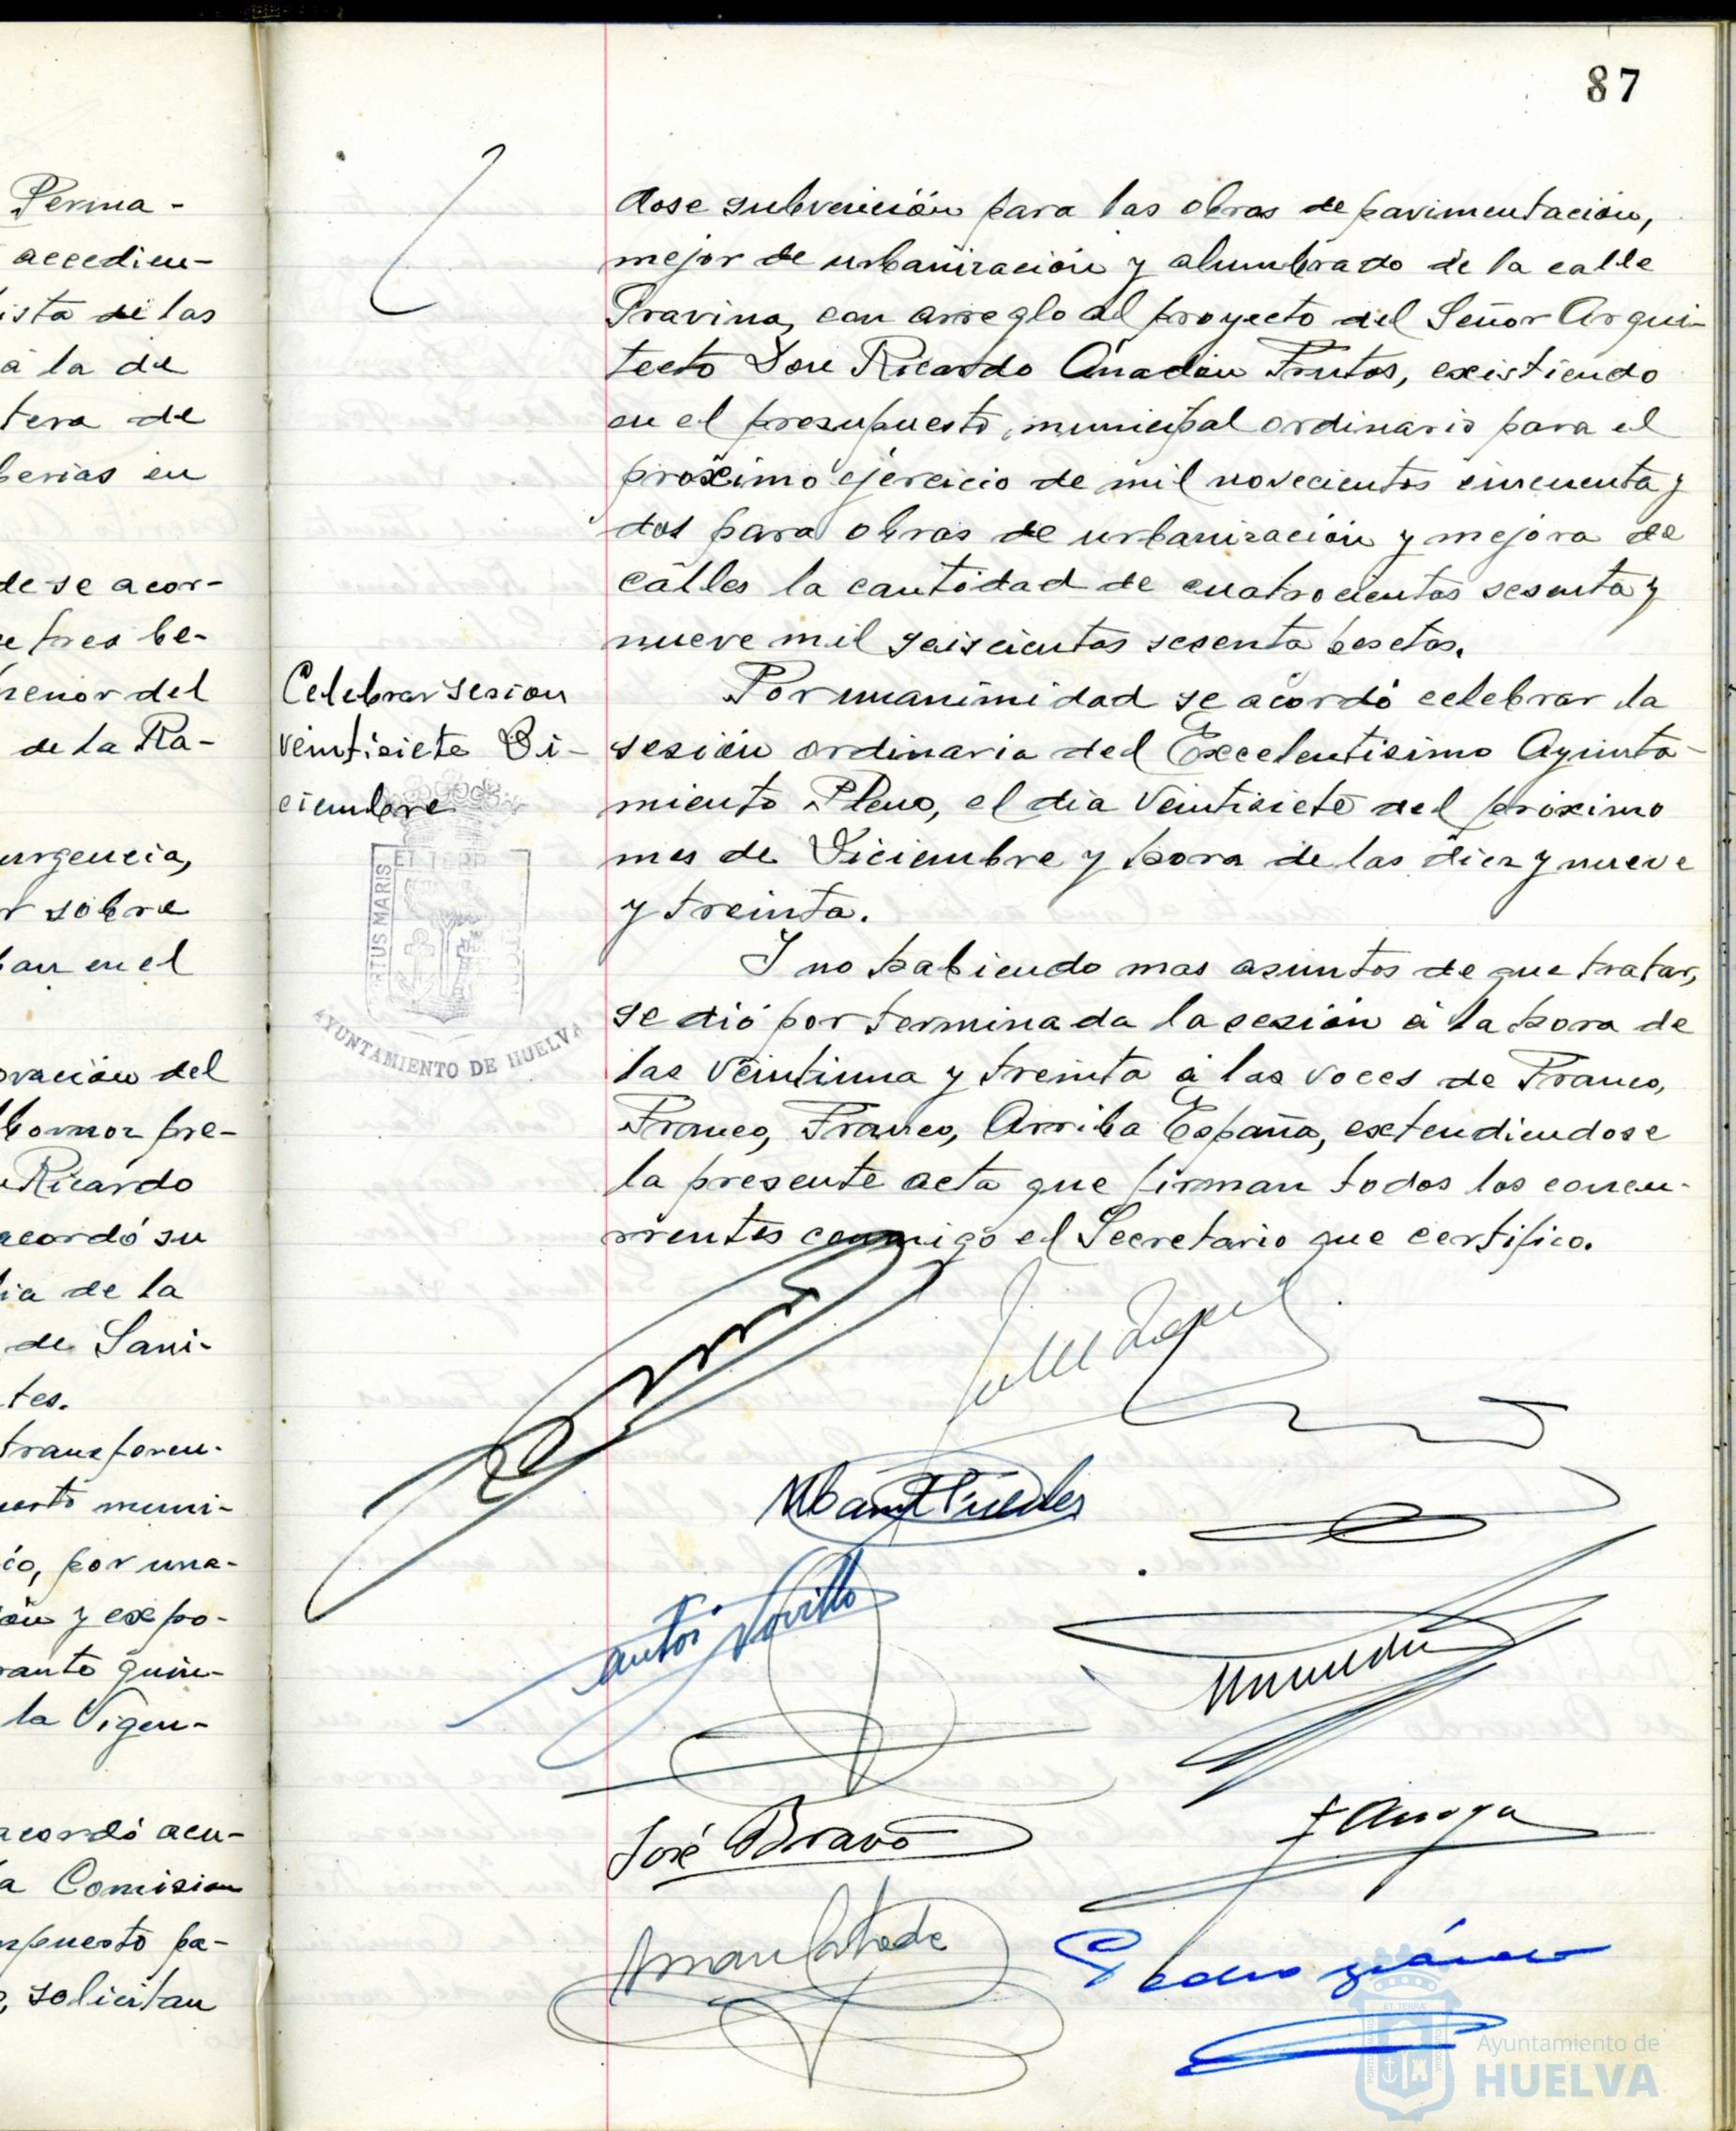 87
Perma-
accedien-
ista de las
a la de
tera de
berias en
de se acor-
tres be-
menor del
de la Ra-
urgencia,
r sobre
ban en el
oración del
pre-
Ricardo
acordó su
ia de la
de Sani-
tes.
transferen-
uesto muni-
co, por una-
y expo-
rante quin-
la Vigen-
acordó acu-
a Comision
upuesto pa-
solicitan
dose subvención para las obras de pavimentación,
mejor de urbanización y alumbrado de la calle
con arreglo al proyecto del Señor Arqui-
tecto Don Ricardo Anadón Frutos, existiendo
en el presupuesto municipal ordinario para el
próximo ejercicio de mil novecientos cincuenta y
dos para obras de urbanización y mejora de
calles la cantidad de cuatrocientos sesenta y
nueve mil seiscientas sesenta pesetas.
Celebrar sesion
veintisiete Di-
ciembre
Por unanimidad se acordó celebrar la
sesión ordinaria del Excelentisimo Ayunta-
miento Pleno, el dia Veintisiete del próximo
mes de Diciembre y hora de las diez y nueve
y treinta.
Y no habiendo mas asuntos de que tratar,
se dió por terminada la sesión a la hora de
las Veintiuna y treinta a las voces de Franco,
Franco, Franco, Arriba España, extendiendose
la presente acta que firman todos los concu-
rrentes conmigo el Secretario que certifico.
ET TERR
RTUS MARIS
AYUNTAMIENTO DE HUELVA
José Bravo
Pedro
Ayuntamiento de
HUELVA